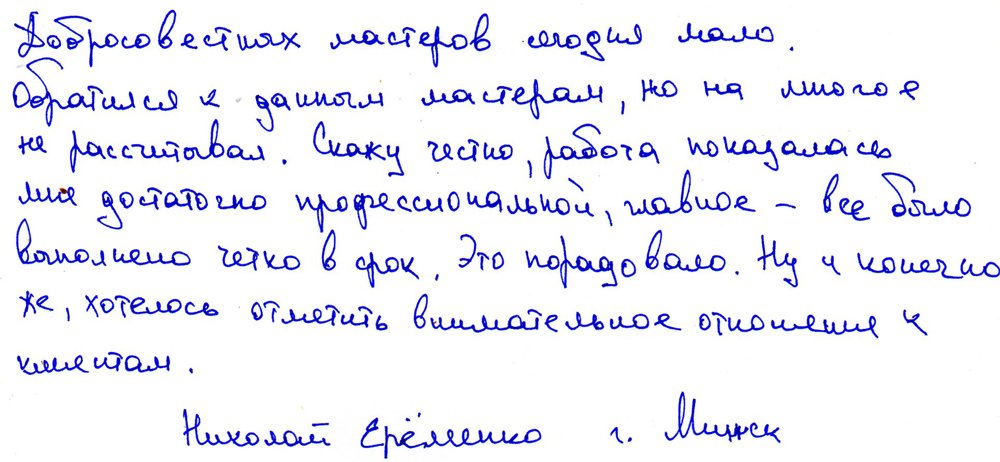 Добросовестных мастеров сегодня мало.
Обратился к данным мастерам, но на многое
не рассчитывал. Скажу честно, работа показалась
мне достаточно профессиональной, главное – все было
выполнено четко в срок. Это порадовало. Ну и конечно
же, хотелось отметить внимательное отношение к
клиентам.
Николай Ерёменко г. Минск